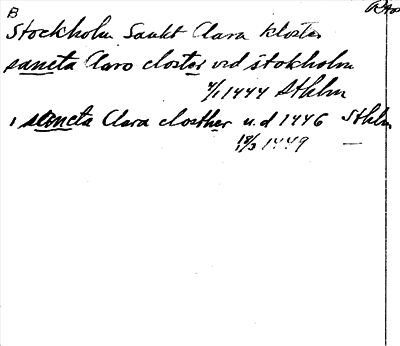 B
Stockholm Sankt Clara kloster
sancta Claro closter vid stokholm
4/1 1444 Sthlm
i sancta Clara closther u.d 1446 Sthlm
18/3 1449 —